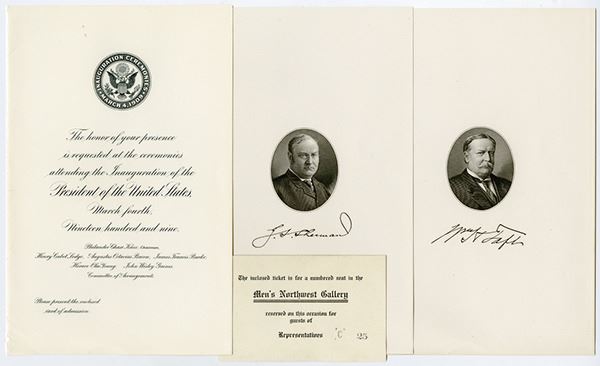 INAUGURATION CEREMONIES
MARCH 4, 1909
The honor of your presence
is requested at the ceremonies
attending the Inauguration of the
President of the United States,
March fourth,
Nineteen hundred and nine.
Philander Chase Knox, Chairman,
Henry Cabot Lodge, Augustus Octavius Bacon, James Francis Burke,
John Wesley Gaines
Committee of Arrangements
Please present the enclosed
card of admission.
J. S. Sherman
The inclosed ticket is for a numbered seat in the
Men's Northwest Gallery
reserved on this occasion for
guests of
Representatives "C" 25
Wm H Taft